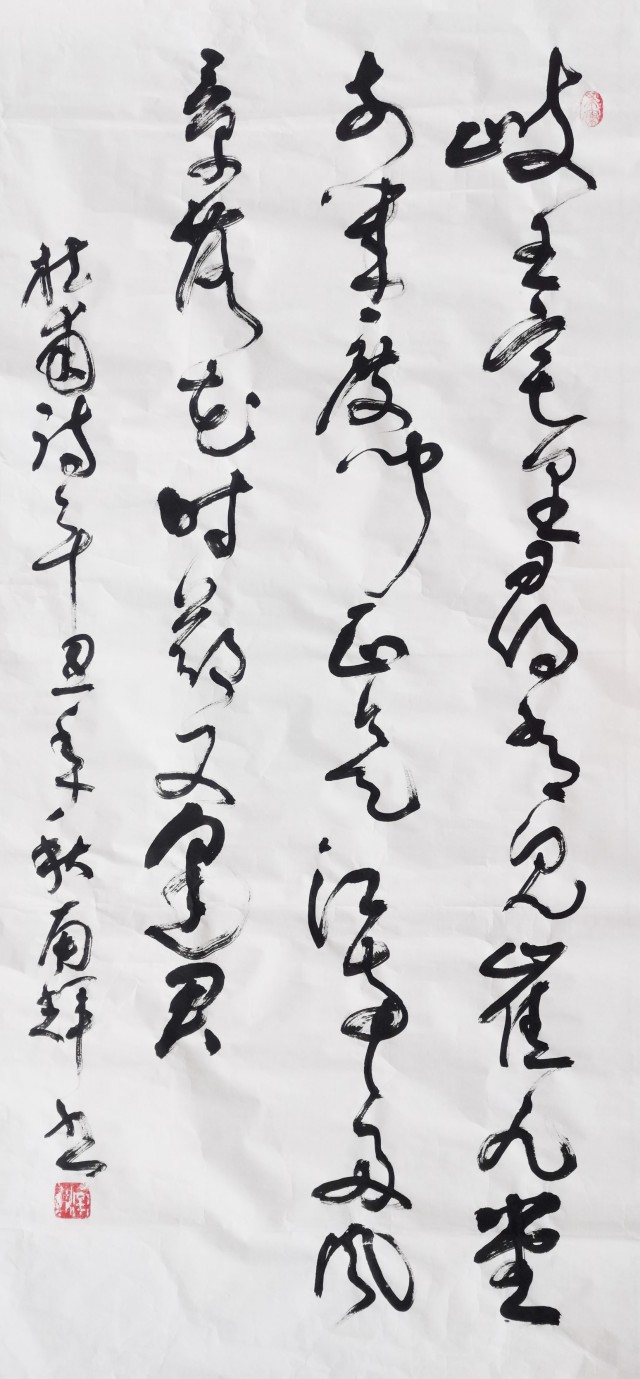 岐王宅里尋常見崔九堂
前幾度闻正是江南好风
景落花时節又逢君
杜甫诗辛丑年秋南辉书